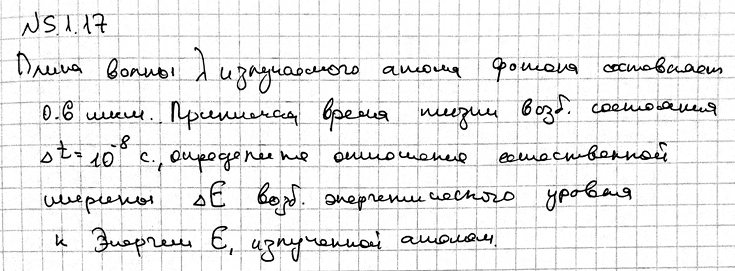 №5.1.17
Длина волны λ излучаемого атома фотона составляет
0.6 мкм. Принимая время жизни возб. состояния
Δt=10⁻⁸ с., определите отношение естественной
ширины ΔE возб. энергетического уровня
к Энергии E, излученной атомом.